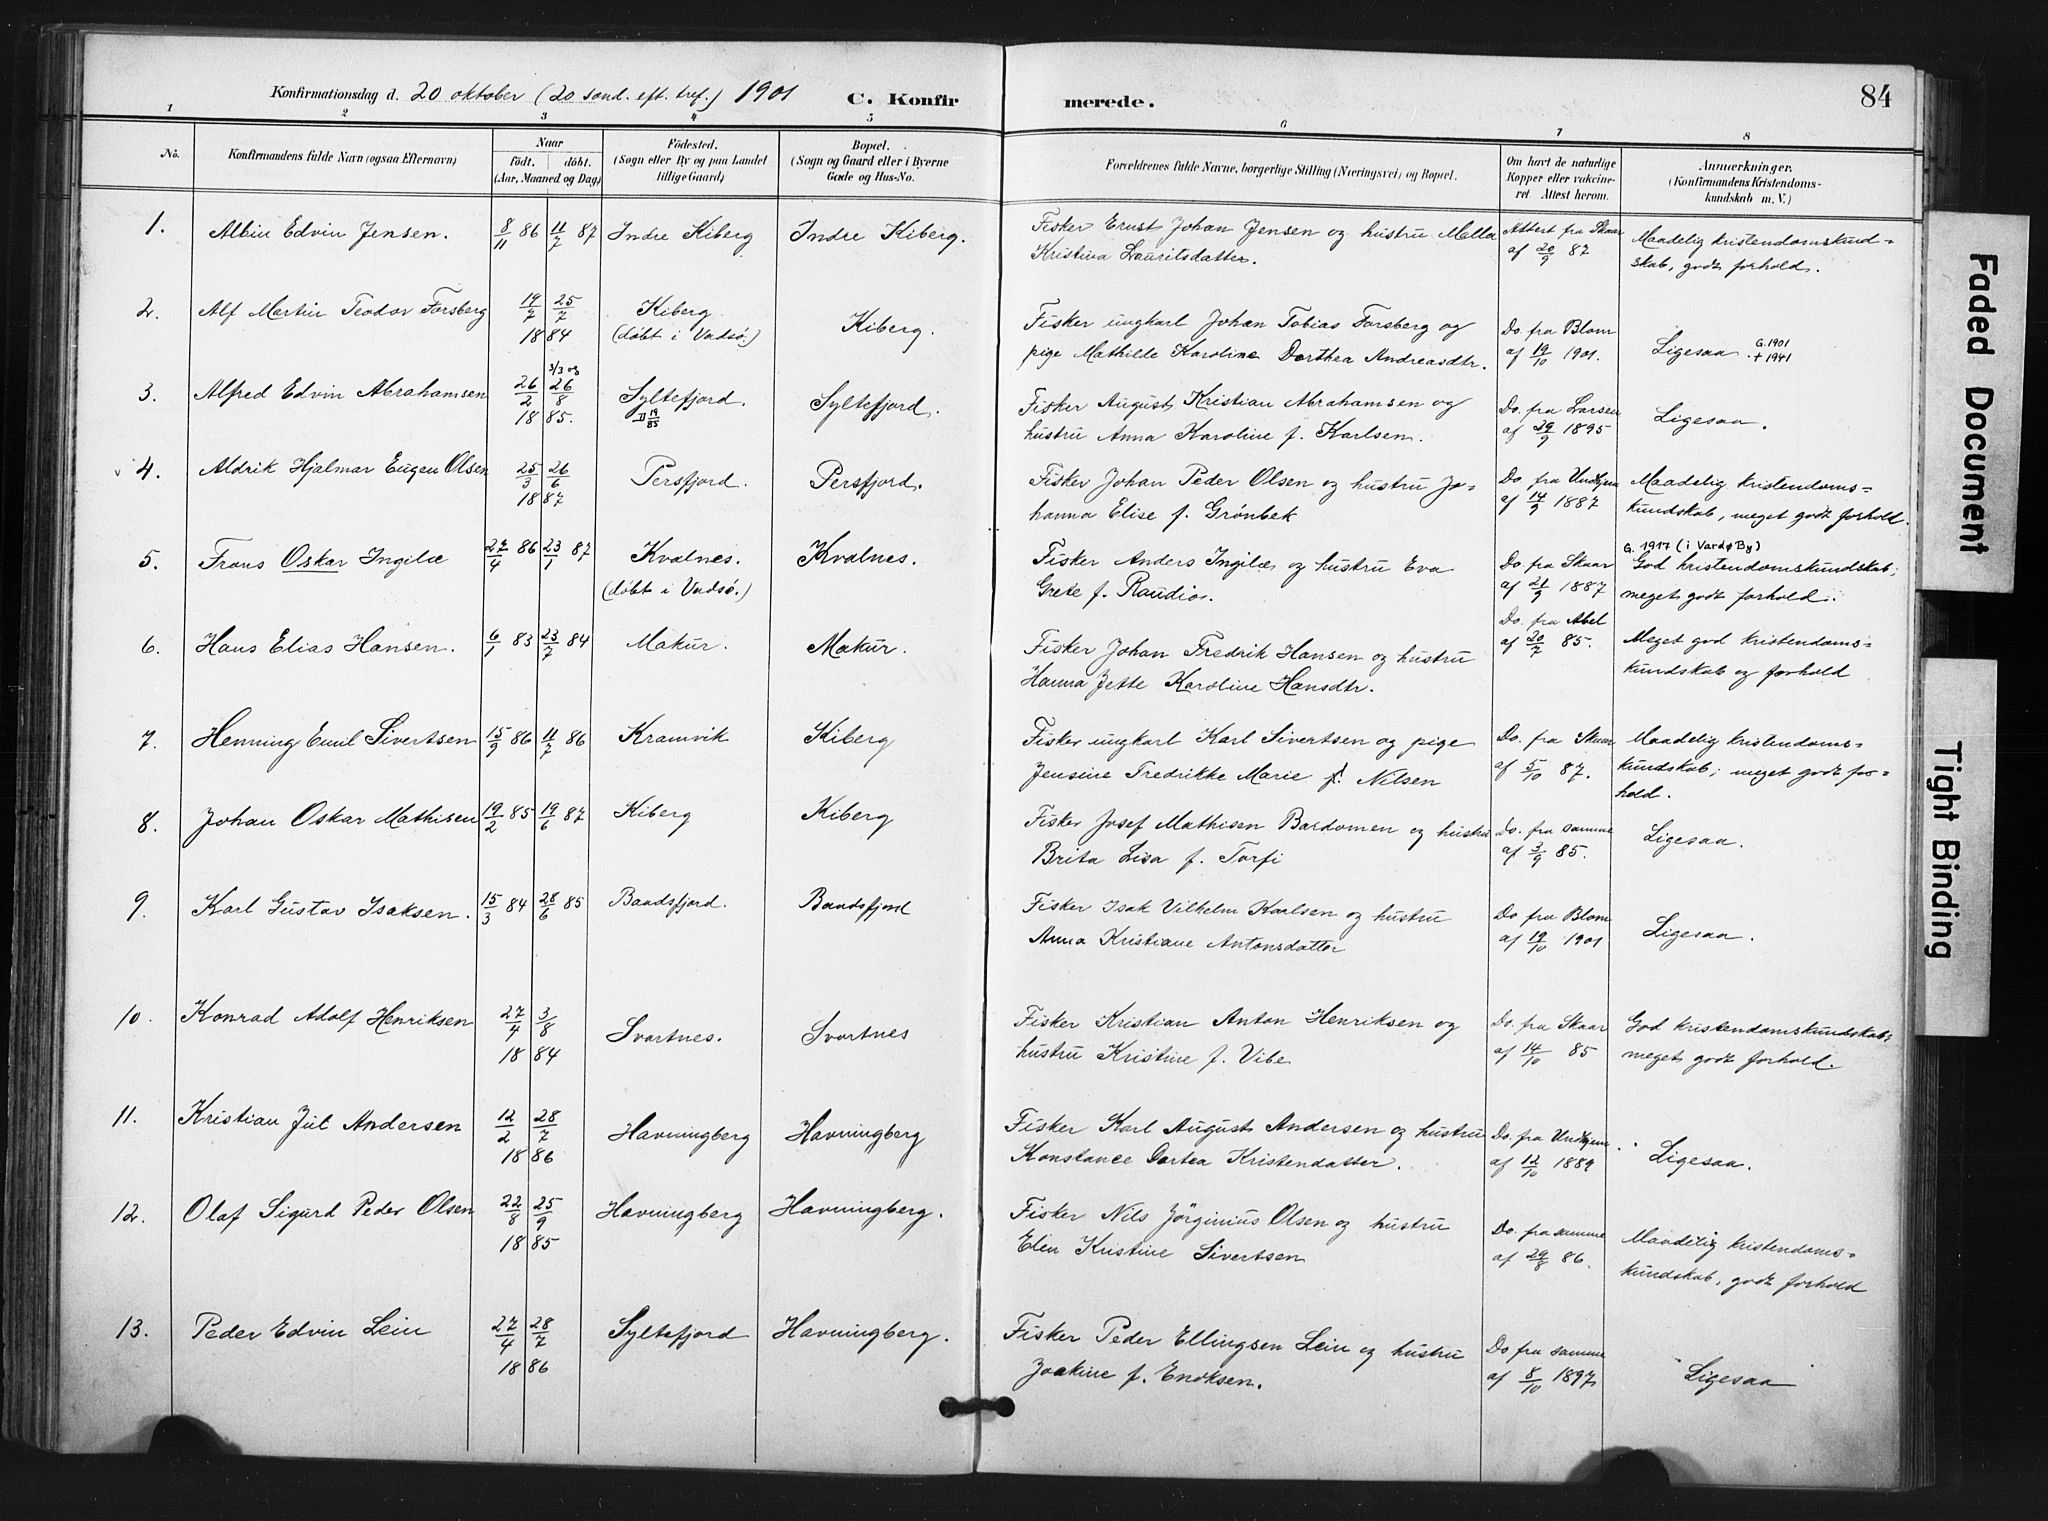 Konfirmationsdag d. 20 oktober (20 sønd. eft. tref.) 1901 C. Konfirmerede. 84
1 2 3 4 5 6 7 8
No. Konfirmandens fulde Navn (ogsaa Efternavn) Naar født. døbt. (Aar, Maaned og Dag) Födested. (Sogn eller By og paa Landet tillige Gaard) Bopæl. (Sogn og Gaard eller i Byerne Gade og Hus-No. Forældrenes fulde Navne, borgerlige Stilling (Næringsvei) og Bopæl. Om havt de naturlige Kopper eller vakcineret Attest herom. Anmærkninger. (Konfirmandens Kristendomskundskab m. V.)
1. Albin Edvin Jensen. 8/11 86 11/7 87 Indre Kiberg Indre Kiberg. Fisker Ernst Johan Jensen og hustru Malla Attest fra Skaar Maadelig kristendomskund=
Kristina Lauritsdatter. af 20/9 87 skab, godt forhold.
2. Alf Martin Teodor Forsberg 19/7 25/7 1884 Kiberg (døbt i Vadsø.) Kiberg. Fisker ungkarl Johan Tobias Forsberg og Do. fra Blom Ligesaa G. 1901 + 1941
pige Mathilde Karoline Dorthea Andreasdtr. af 19/10 1901.
3. Alfred Edvin Abrahamsen 26/2 3/3 og 26/8 1885. Syltefjord. D 19/85 Syltefjord. Fisker August Kristian Abrahamsen og Do. fra Larsen Ligesaa.
hustru Anna Karoline f. Karlsen. af 29/9 1895
4. Aldrik Hjalmar Eugen Olsen 25/3 26/6 1887 Persfjord. Persfjord. Fisker Johan Peder Olsen og hustru Jo= Do. fra Undhjem Maadelig kristendoms=
hanna Elise f. Grönbek af 14/9 1887 kundskab, meget godt forhold.
5. Frans Oskar Ingilæ 27/4 86 23/1 87 Kvalnes. (døbt i Vadsø.) Kvalnes. Fisker Anders Ingilæ og hustru Eva Do. fra Skaar G. 1917 (i Vardø By) God kristendomskundskab;
Grete f. Raudio. af 21/9 1887 meget godt forhold.
6. Hans Elias Hansen. 6/1 83 23/7 84 Makur. Makur. Fisker Johan Fredrik Hansen og hustru Do. fra Abel Meget god kristendoms=
Hanna Jette Karoline Hansdtr. af 20/7 85. kundskab og forhold
7. Henning Emil Sivertsen 15/9 86 11/7 86 Kramvik Kiberg Fisker ungkarl Karl Sivertsen og pige Do. fra Skaar Maadelig kristendoms=
Jensine Fredrikke Marie f. Nilsen af 5/10 87. kundskab; meget godt for=
hold.
8. Johan Oskar Mathisen 19/2 85 19/6 87 Kiberg Kiberg Fisker Josef Mathisen Bardomen og hustru Do. fra samme Ligesaa.
Brita Lisa f. Torfi af 3/9 85.
9. Karl Gustav Isaksen. 15/3 84 28/6 85 Baadsfjord. Baadsfjord Fisker Isak Vilhelm Karlsen og hustru Do. fra Blom Ligesaa.
Anna Kristiane Antonsdatter af 19/10 1901
10. Konrad Adolf Henriksen 27/4 3/8 1884 Svartnes. Svartnes Fisker Kristian Anton Henriksen og Do. fra Skaar God kristendomskundskab;
hustru Kristine f. Vibe. af 14/10 85 meget godt forhold.
11. Kristian Jul Andersen 12/2 28/7 1886 Havningberg Havningberg Fisker Karl August Andersen og hustru Do. fra Undhjem. Ligesaa.
Konstance Dortea Kristendatter. af 12/10 1889
12. Olaf Sigurd Peder Olsen 22/8 25/9 1885 Havningberg Havningberg. Fisker Nils Jörginius Olsen og hustru Do. fra samme Maadelig kristendoms=
Elen Kristine Sivertsen af 29/8 86. kundskab, godt forhold
13. Peder Edvin Lein 27/4 28/7 1886 Syltefjord Havningberg. Fisker Peder Ellingsen Lein og hustru Do fra samme Ligesaa
Joakine f. Enoksen. af 8/10 1897
Faded Document
Tight Binding